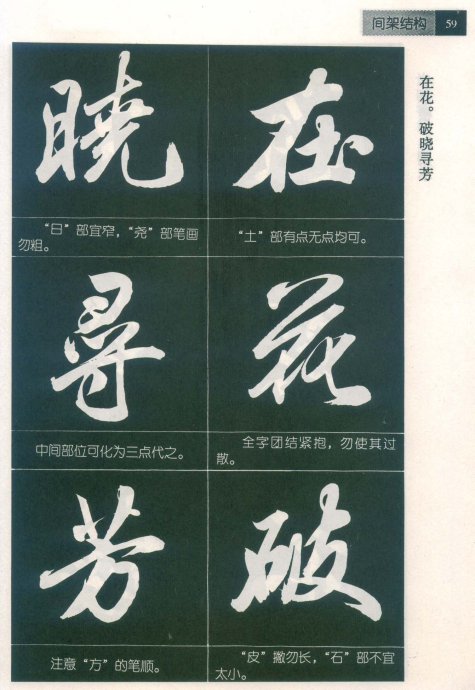 间架结构 59
在花。破晓寻芳
在
“土”部有点无点均可。
花
全字团结紧抱，勿使其过
散。
破
“皮”撇勿长，“石”部不宜
太小。
曉
“日”部宜窄，“尧”部笔画
勿粗。
尋
中间部位可化为三点代之。
芳
注意“方”的笔顺。